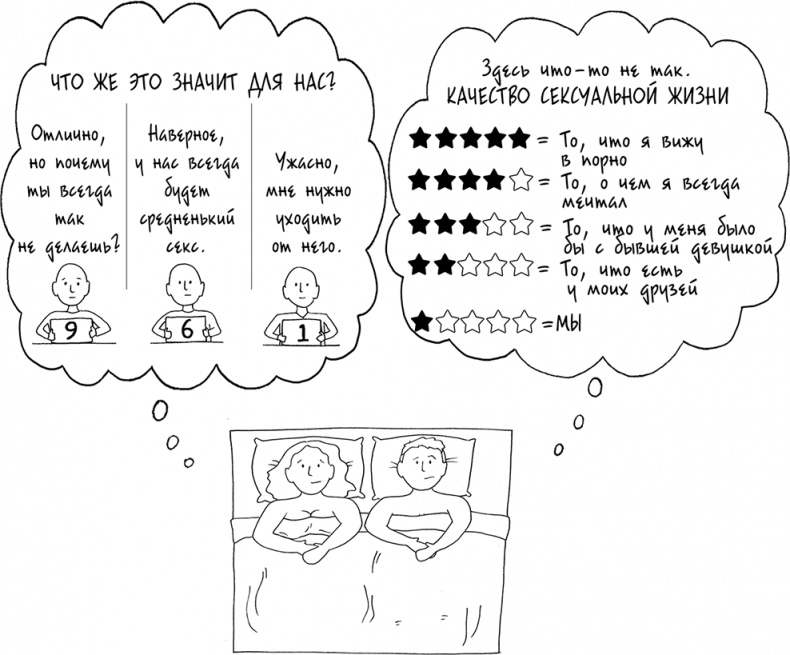 ЧТО ЖЕ ЭТО ЗНАЧИТ ДЛЯ НАС?
Отлично,
но почему
ты всегда
так
не делаешь?
9
Наверное,
у нас всегда
будет
средненький
секс.
6
Ужасно,
мне нужно
уходить
от него.
1
Здесь что-то не так.
КАЧЕСТВО СЕКСУАЛЬНОЙ ЖИЗНИ
★★★★★ = То, что я вижу
в порно
★★★★☆ = То, о чем я всегда
мечтал
★★★☆☆ = То, что у меня было
бы с бывшей девушкой
★★☆☆☆ = То, что есть
у моих друзей
★☆☆☆☆ = МЫ